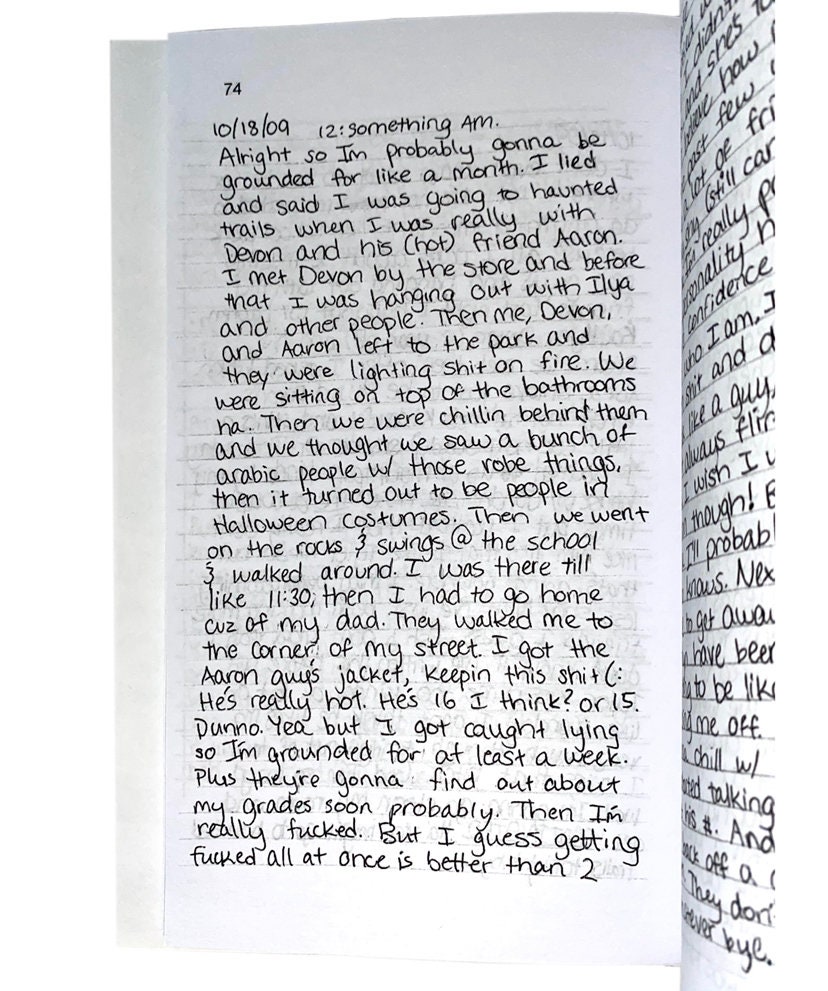 74
10/18/09 12:something AM.
Alright so Im probably gonna be
grounded for like a month. I lied
and said I was going to haunted
trails when I was really with
Devon and his (hot) friend Aaron.
I met Devon by the store and before
that I was hanging out with Ilya
and other people. Then me, Devon,
and Aaron left to the park and
they were lighting shit on fire. We
were sitting on top of the bathrooms
ha. Then we were chillin behind them
and we thought we saw a bunch of
arabic people w/ those robe things,
then it turned out to be people in
Halloween costumes. Then we went
on the rocks & swings @ the school
& walked around. I was there till
like 11:30, then I had to go home
cuz of my dad. They walked me to
the corner of my street. I got the
Aaron guy's jacket, keepin this shit (:
He's really hot. He's 16 I think? or 15.
Dunno. Yea but I got caught lying
so Im grounded for at least a week.
Plus they're gonna find out about
my grades soon probably. Then Im
really fucked. But I guess getting
fucked all at once is better than 2
didn't
and she's
how
past few
lot of fri
(still car
really
confidence
who I am. I
shit and
like a guy,
always flir
wish I
though! 
I'll probabl
knows. Nex
to get away
have beer
to be like
me off.
chill w/
talking
his #. And
off a
They don'
bye.